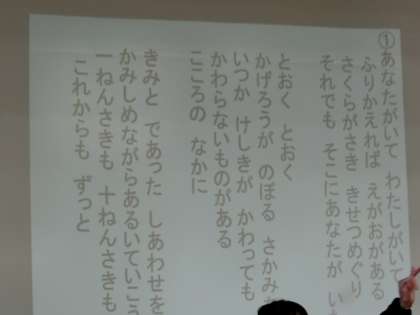 ①あなたがいて わたしがいて
ふりかえれば えがおがある
さくらがさき きせつめぐり
それでも そこにあなたが い
とおく とおく
かげろうが のぼる さかみ
いつか けしきが かわっても
かわらないものがある
こころの なかに
きみと であった しあわせを
かみしめながらあるいていこう
一ねんさきも 十ねんさきも
これからも ずっと